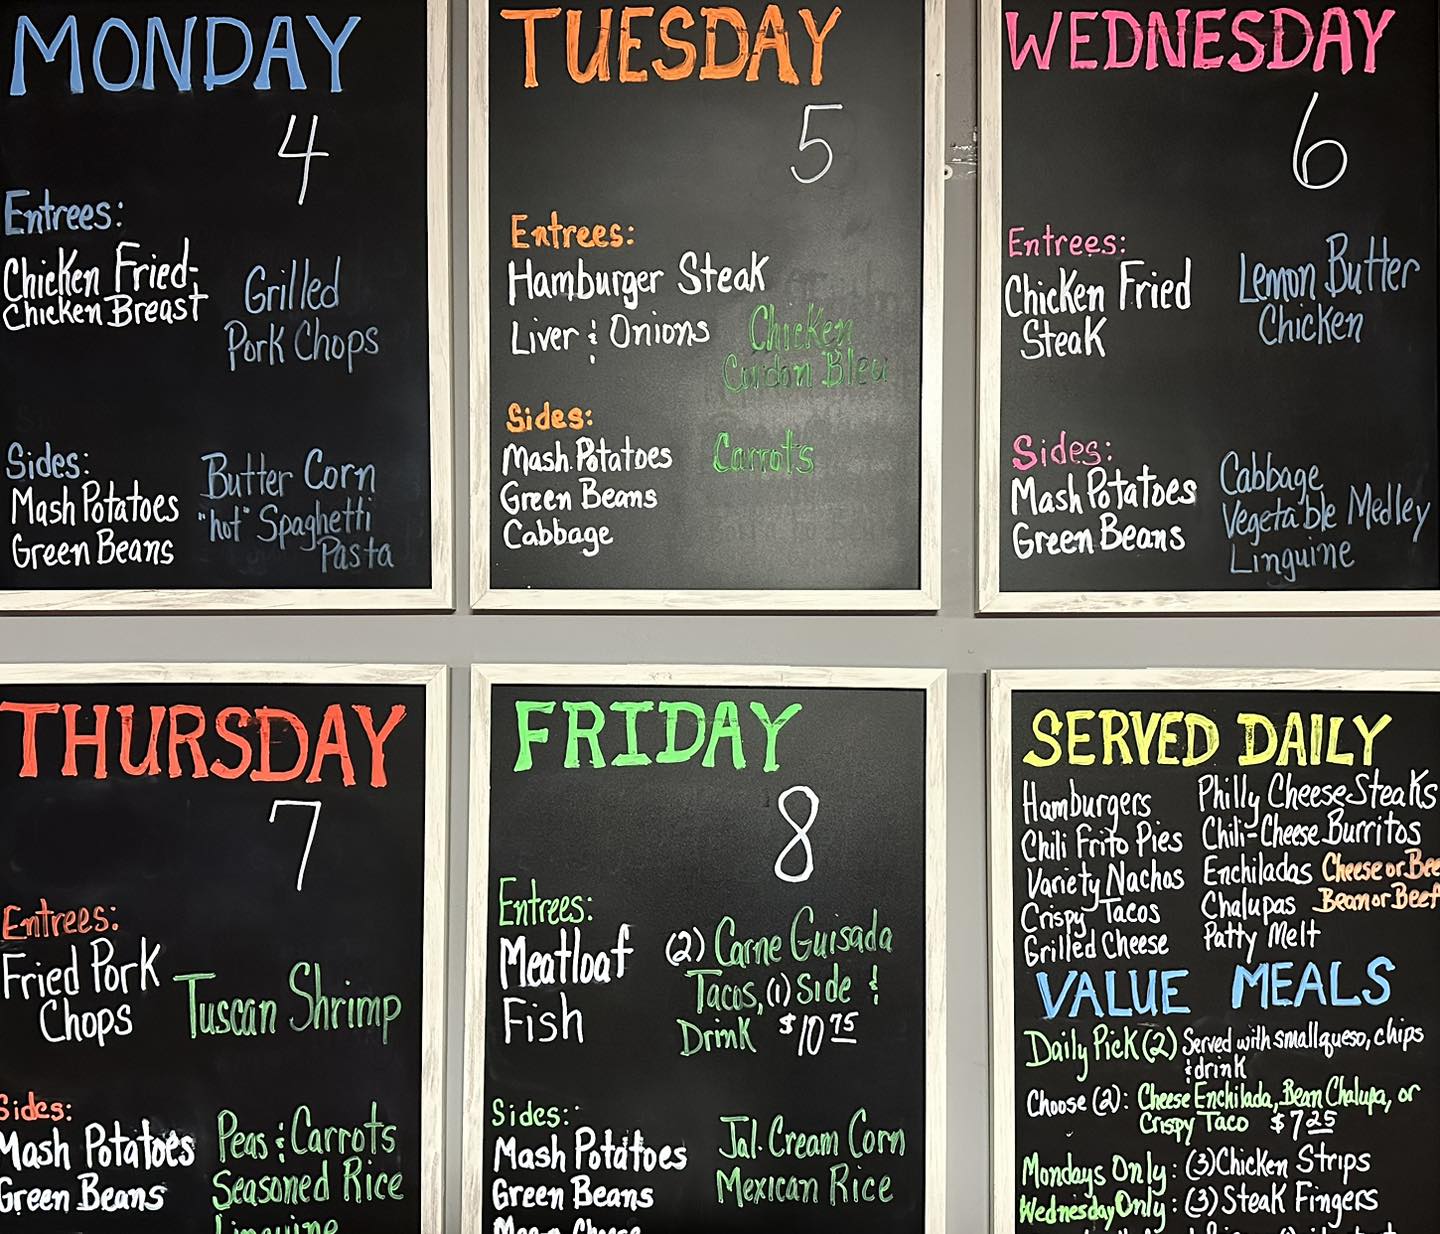 MONDAY
4
Entrees:
Chicken Fried-
Chicken Breast
Grilled
Pork Chops
Sides:
Mash Potatoes
Green Beans
Butter Corn
"hot" Spaghetti
Pasta
TUESDAY
5
Entrees:
Hamburger Steak
Liver & Onions
Chicken
Cordon Bleu
Sides:
Mash Potatoes
Green Beans
Cabbage
Carrots
WEDNESDAY
6
Entrees:
Chicken Fried
Steak
Lemon Butter
Chicken
Sides:
Mash Potatoes
Green Beans
Cabbage
Vegetable Medley
Linguine
THURSDAY
7
Entrees:
Fried Pork
Chops
Tuscan Shrimp
Sides:
Mash Potatoes
Green Beans
Peas & Carrots
Seasoned Rice
Linguine
FRIDAY
8
Entrees:
Meatloaf
Fish
(2) Carne Guisada
Tacos, (1) Side &
Drink $10 75
Sides:
Mash Potatoes
Green Beans
Jal. Cream Corn
Mexican Rice
SERVED DAILY
Hamburgers
Chili Frito Pies
Variety Nachos
Crispy Tacos
Grilled Cheese
Philly Cheese Steaks
Chili-Cheese Burritos
Enchiladas Cheese or Bee
Chalupas Bean or Beef
Patty Melt
VALUE MEALS
Daily Pick (2) Served with small queso, chips
& drink
Choose (2): Cheese Enchilada, Bean Chalupa, or
Crispy Taco $7 25
Mondays Only: (3) Chicken Strips
Wednesday Only: (3) Steak Fingers